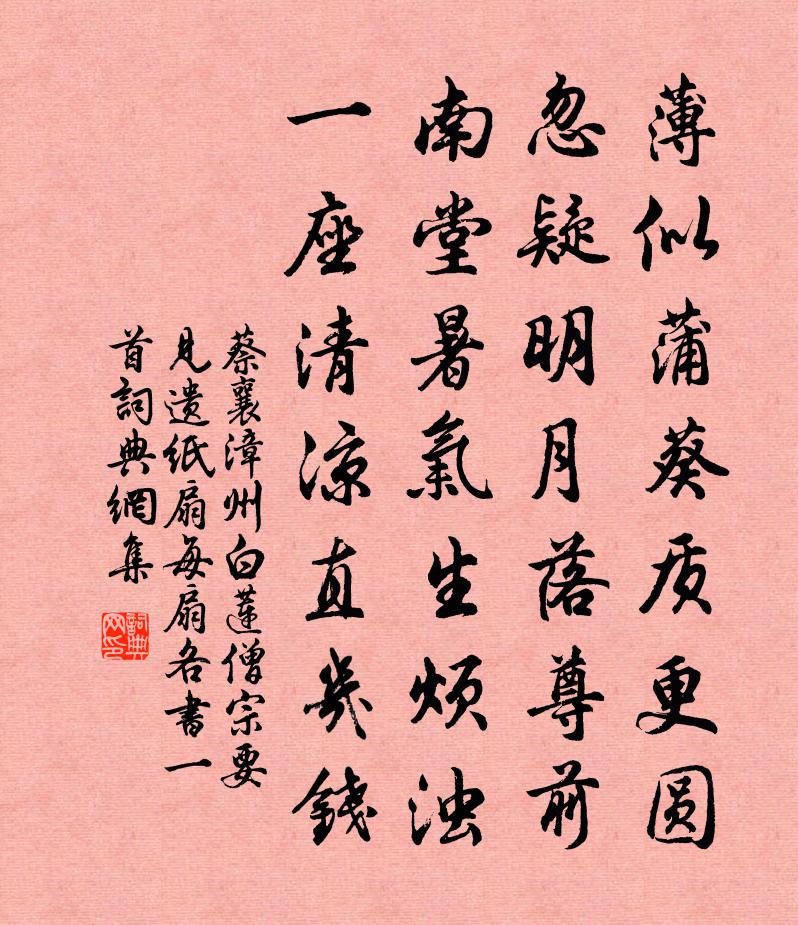 薄似蒲葵质更圆
忽疑明月落尊前
南堂暑氣生烦浊
一座清凉直幾錢
蔡襄漳州白蓮僧宗要
見遺纸扇每扇各書一
首詞典網集
詞典网印